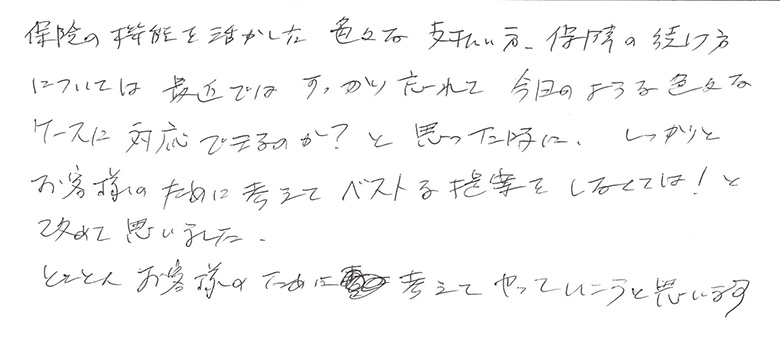 保険の機能を活かした色々な支払い方、保障の続け方
については最近ではすっかり忘れて今日のような色々な
ケースに対応できるのか?と思った時に、しっかりと
お客様のために考えてベストな提案をしなくては!と
改めて思いました。
とことんお客様のために考えてやっていこうと思います